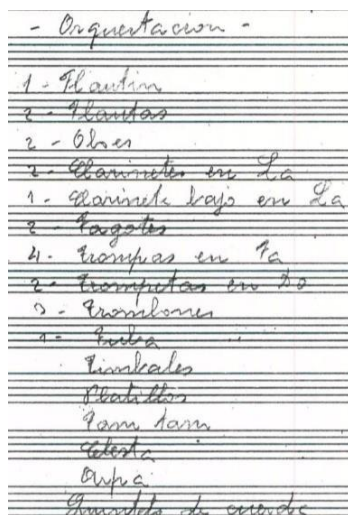 - Orquestacion -
1 - Flautin
2 - Flautas
2 - Oboes
2 - Clarinetes en La
1 - Clarinete bajo en La
2 - Fagotes
4 - Trompas en Fa
2 - Trompetas en Do
3 - Trombones
1 - Tuba
Timbales
Platillos
Tam tam
Celesta
Arpa
Quinteto de cuerda